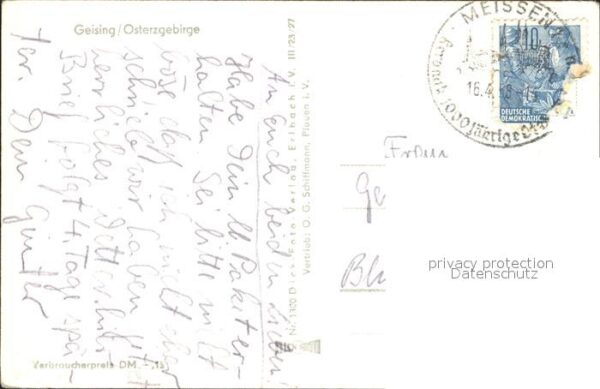 Geising / Osterzgebirge
An euch beiden Lieben!
Habe Dein Paket er-
halten. Sei bitte nicht
böse daß ich nicht eher
schrieb wir haben jetzt
herrliches Wetter hier
Brief folgt 4. Tage spä-
ter. Dein Günther
Verbraucherpreis DM -,15
Nr. 1300 D Lux-Foto Verlag, Erlbach i. V. III/23/27
Vertrieb: O. G. Schiffmann, Plauen i. V.
MEISSEN
16.4.
1000jährige
10
DEUTSCHE
DEMOKRATISCHE
Frau
Ge
Bh
privacy protection
Datenschutz